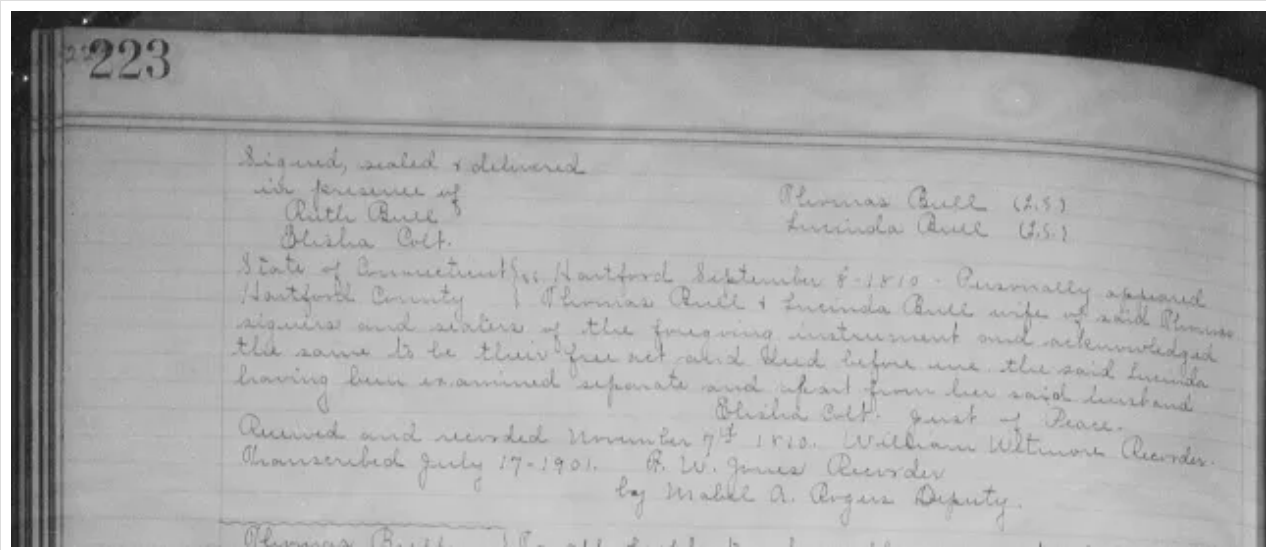 223
Signed, sealed & delivered
in presence of
Ruth Bull
Elisha Colt.
Thomas Bull (L.S.)
Lucinda Bull (L.S.)
State of Connecticut } ss Hartford September 8-1810 - Personally appeared
Hartford County } Thomas Bull & Lucinda Bull wife of said Thomas
signers and sealers of the foregoing instrument and acknowledged
the same to be their free act and deed before me the said Lucinda
having been examined separate and apart from her said husband
Elisha Colt. Just of Peace.
Received and recorded November 7th 1810. William Wetmore Recorder.
Transcribed July 17-1901. R. W. Jones Recorder
by Mabel A. Rogers Deputy.
Thomas Bull